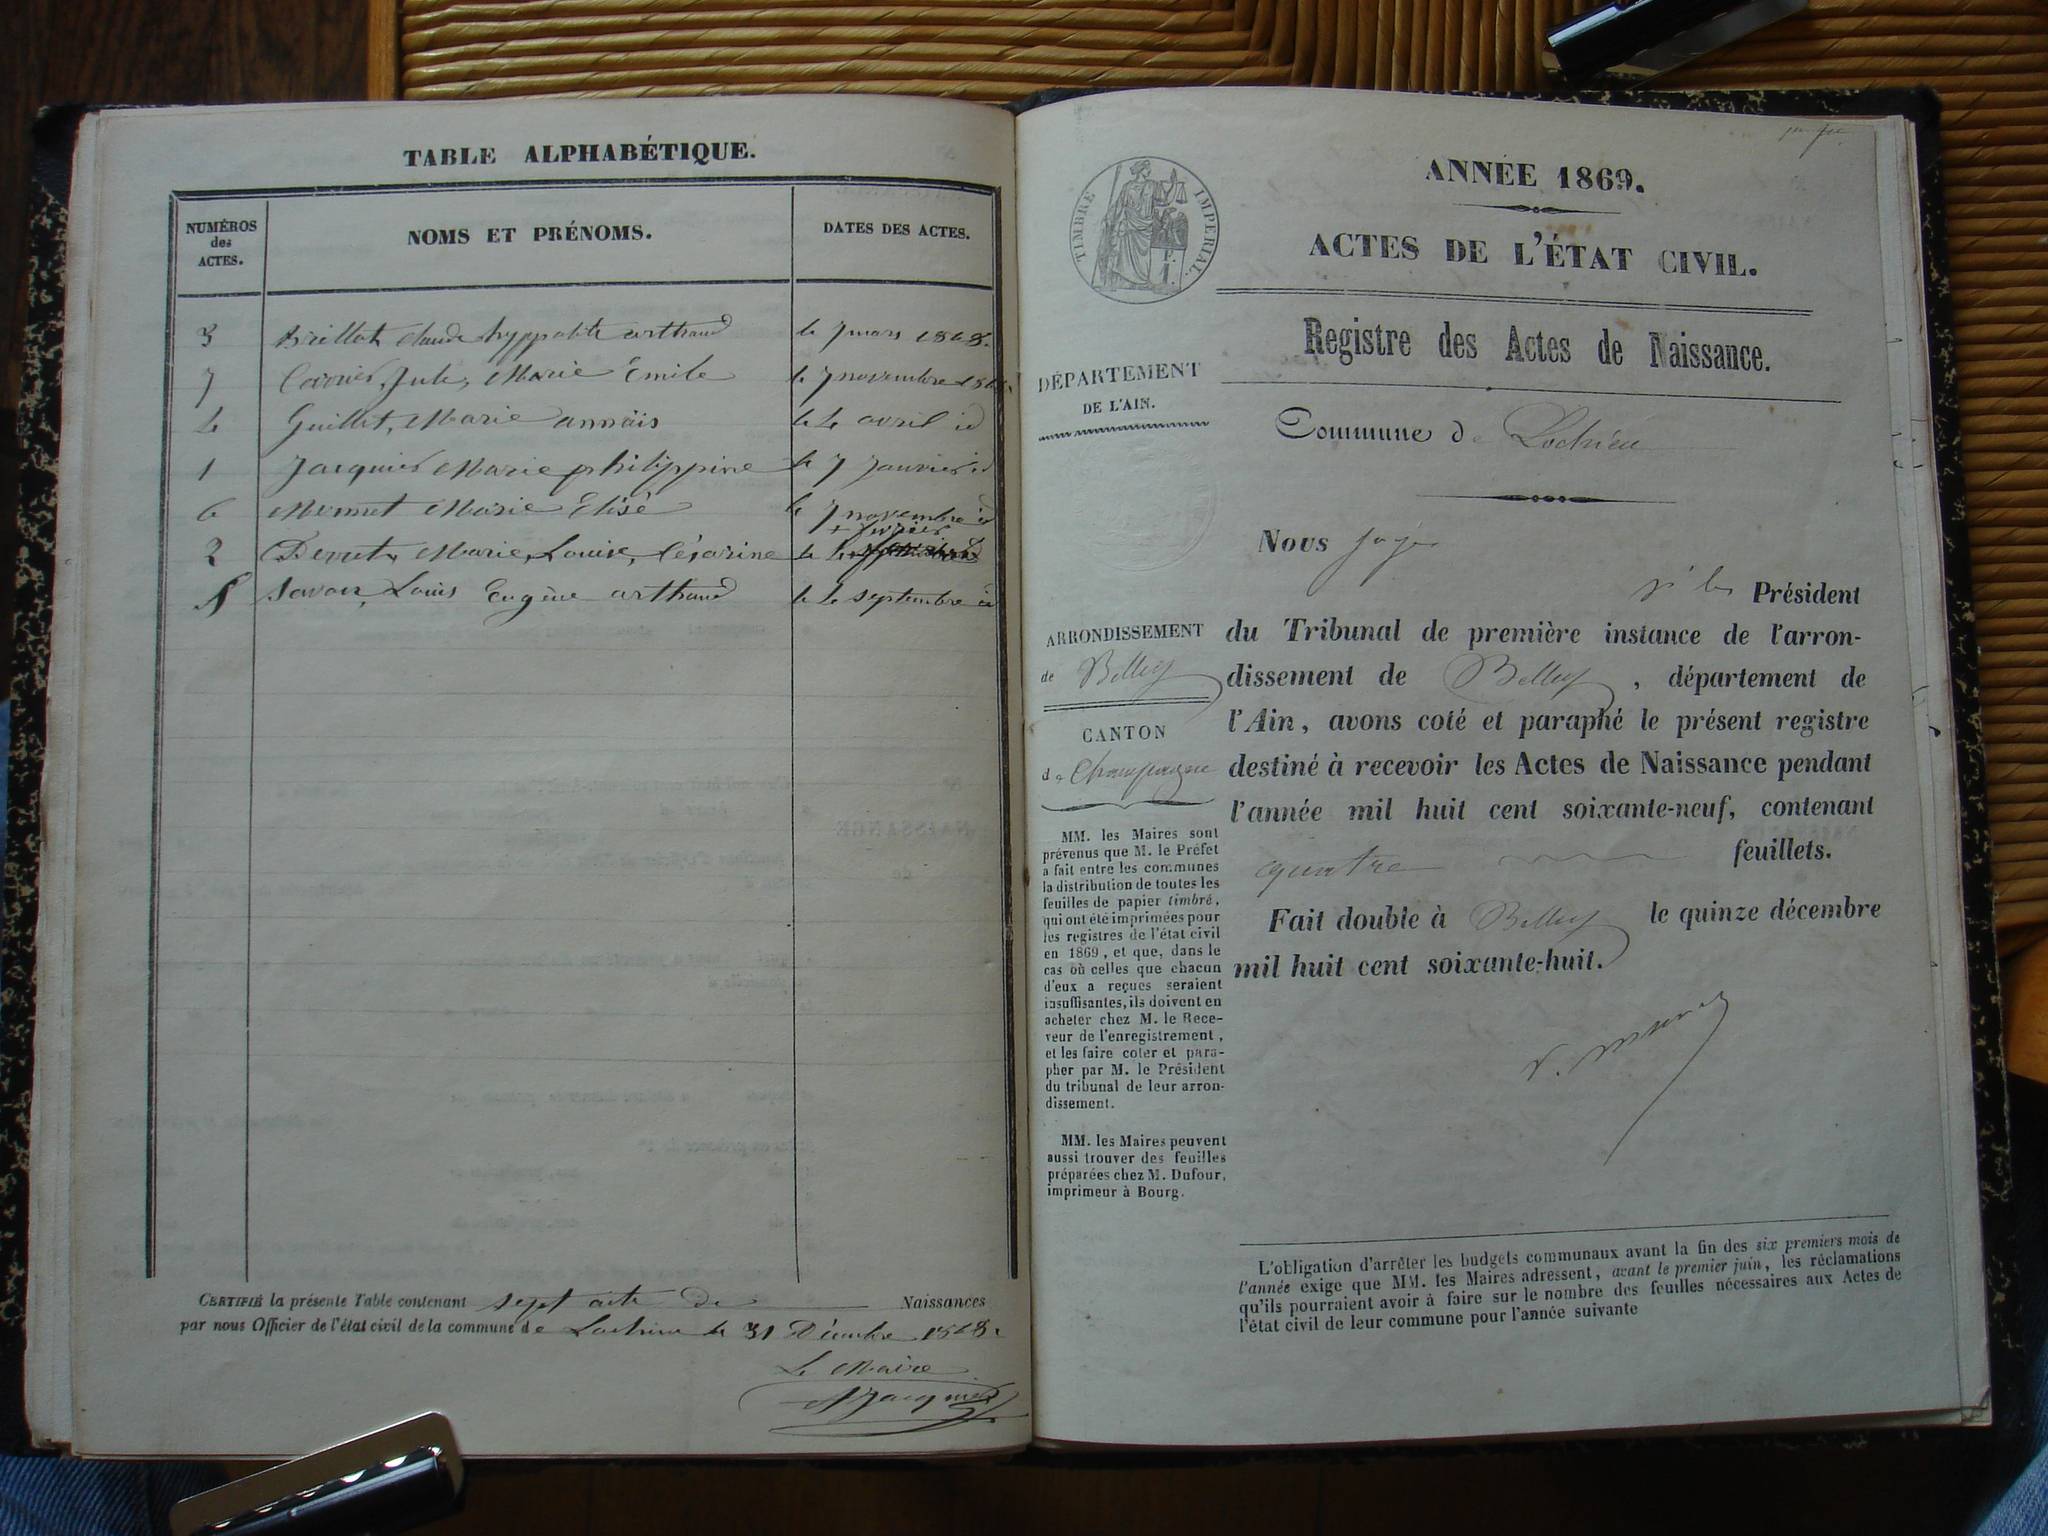 TABLE ALPHABÉTIQUE.
NUMÉROS
des
ACTES.
NOMS ET PRÉNOMS.
DATES DES ACTES.
3 Brillat, Claude hyppolite arthaud le 7 mars 1868.
7 Carrier, Jule, Marie Emile le 7 novembre 1868.
4 Guillet, Marie annaïs le 4 avril id
1 Jacquier Marie philippine le 7 Janvier id
6 Monnet Marie Elise le 7 novembre id
2 Marie, Louise, Césarine le 4 février
5 Savoir, Louis Eugène arthaud le 4 septembre id
CERTIFIÉ la présente Table contenant sept acte de Naissances
par nous Officier de l'état civil de la commune de Lochieu le 31 Décembre 1868.
Le Maire
Jacquier
ANNÉE 1869.
ACTES DE L'ÉTAT CIVIL.
TIMBRE IMPÉRIAL.
Registre des Actes de Naissance.
DÉPARTEMENT
DE L'AIN.
Commune de Lochieu
Nous juge
Président
du Tribunal de première instance de l'arron-
dissement de Belley, département de
l'Ain, avons coté et paraphé le présent registre
destiné à recevoir les Actes de Naissance pendant
l'année mil huit cent soixante-neuf, contenant
quatre feuillets.
Fait double à Belley le quinze décembre
mil huit cent soixante-huit.
ARRONDISSEMENT
de Belley
CANTON
de Champagne
MM. les Maires sont
prévenus que M. le Préfet
a fait entre les communes
la distribution de toutes les
feuilles de papier timbré,
qui ont été imprimées pour
les registres de l'état civil
en 1869, et que, dans le
cas où celles que chacun
d'eux a reçues seraient
insuffisantes, ils doivent en
acheter chez M. le Rece-
veur de l'enregistrement,
et les faire coter et para-
pher par M. le Président
du tribunal de leur arron-
dissement.
MM. les Maires peuvent
aussi trouver des feuilles
préparées chez M. Dufour,
imprimeur à Bourg.
L'obligation d'arrêter les budgets communaux avant la fin des six premiers mois de
l'année exige que MM. les Maires adressent, avant le premier juin, les réclamations
qu'ils pourraient avoir à faire sur le nombre des feuilles nécessaires aux Actes de
l'état civil de leur commune pour l'année suivante